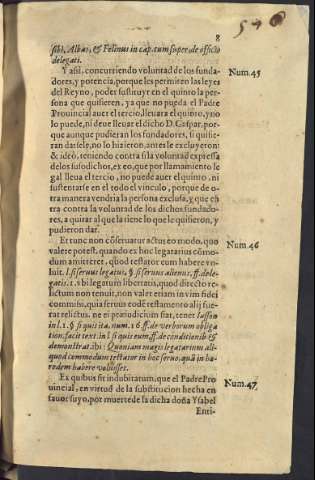 8
ſibi, Albar, & Felinus in cap. cum ſuper, de officio
delegati.
Y aſsi, concurriendo voluntad de los funda-
dores, y potencia, porque les permiten las leyes
del Reyno, poder ſuſtituyr en el quinto la per
ſona que quiſieren, ya que no pueda el Padre
Prouincial auer el tercio lleuara el quinto, y no
lo puede, ni deue lleuar el dicho D. Gaſpar, por-
que aunque pudieran los fundadores, ſi quiſie-
ran darſelo, no lo hizieron, antes le excluyeron:
& ideò, teniendo contra ſi la voluntad expreſſa
de los ſuſodichos, ex eo, que por llamamiento le
gal lleua el tercio, no puede auer el quinto, ni
ſuſtentarſe en todo el vinculo, porque de o-
tra manera vendria la perſona excluſa, y que eſtà
contra la voluntad de los dichos fundado-
res, a quitar al que la tiene lo que le quiſieron, y
pudieron dar.
Num. 45
Et tunc non cõſeruatur actus eo modo, quo
valere poteſt, quando ex hoc legatarius cõmo-
dum amitteret, quod teſtator eum habere vo-
luit. l. ſi ſeruus legatus, §. ſi ſeruus alienus, ff. de le-
gatis. 1. vbi legatum libertatis, quod directo re-
lictum non tenuit, non valet etiam in vim fidei
commiſsi, quia ſeruus todẽ teſtamento alij fue-
rat relictus, ne ei præiudicium fiat, tenet Iaſſon
in l. 1. §. ſi quis ita, num. 16 ff. de verborum obliga
tion. facit text. in l. ſi quis eum, ff. de conditionib. &
demonſtrat. ibi: Quoniam magis legatarium ali-
quod commodum teſtator in hoc ſeruo, quã in hæ-
redem habere voluiſſet.
Num. 46
Ex quibus ſit indubitatum, que el Padre Pro
uincial, en virtud de la ſubſtitucion hecha en
fauor ſuyo, por muerte de la dicha doña Yſabel
Num. 47
Enri-